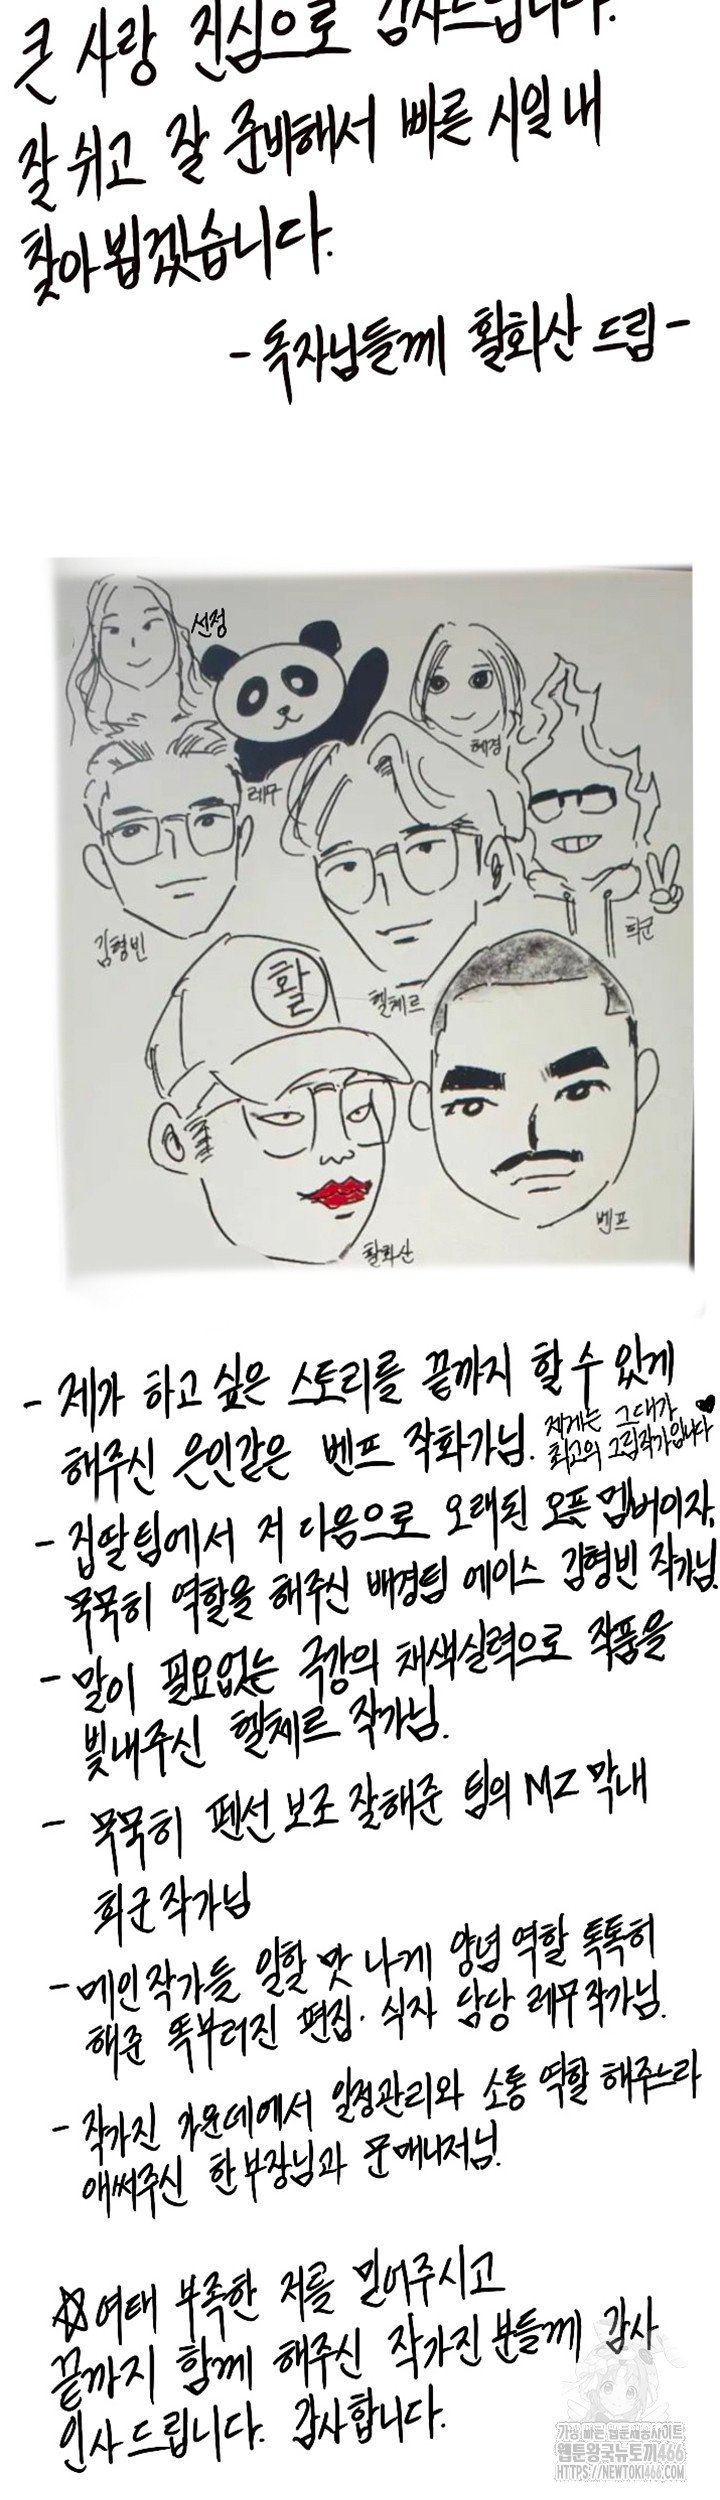 큰 사랑 진심으로 감사드립니다.
잘 쉬고 잘 준비해서 빠른 시일 내
찾아뵙겠습니다.
- 독자님들께 활화산 드림 -
선정
혜경
레무
김형빈
헬체르
희군
활
활화산
벤프
- 제가 하고 싶은 스토리를 끝까지 할 수 있게
해주신 은인같은 벤프 작화가님. 제게는 그대가 ♥
최고의 그림작가입니다
- 집딸팀에서 저 다음으로 오래된 오픈멤버이자,
묵묵히 역할을 해주신 배경팀 에이스 김형빈 작가님.
- 말이 필요없는 극강의 채색실력으로 작품을
빛내주신 헬체르 작가님.
- 묵묵히 펜선 보조 잘해준 팀의 MZ 막내
희군 작가님
- 메인작가들 일할 맛 나게 양념 역할 톡톡히
해준 똑부러진 편집·식자 담당 레무 작가님.
- 작가진 가운데에서 일정관리와 소통 역할 해주느라
애써주신 한부장님과 문매니저님.
☆여태 부족한 저를 믿어주시고
끝까지 함께 해주신 작가진분들께 감사
인사드립니다. 감사합니다.
가장 빠른 웹툰제공사이트
웹툰왕국뉴토끼466
HTTPS://NEWTOKI466.COM